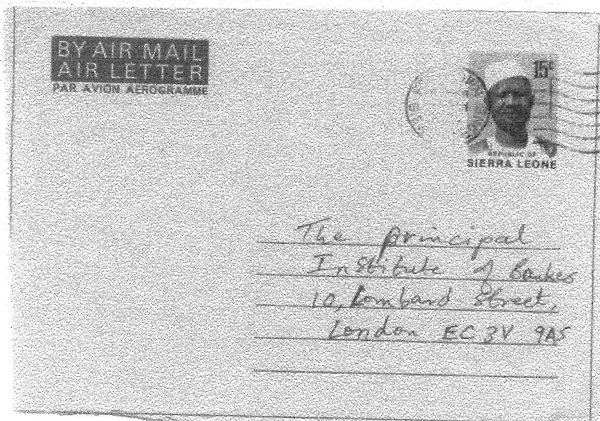 BY AIR MAIL
AIR LETTER
PAR AVION AEROGRAMME
15c
REPUBLIC OF
SIERRA LEONE
The principal
Institute of Bankers
10, Lombard Street,
London EC3V 9AS